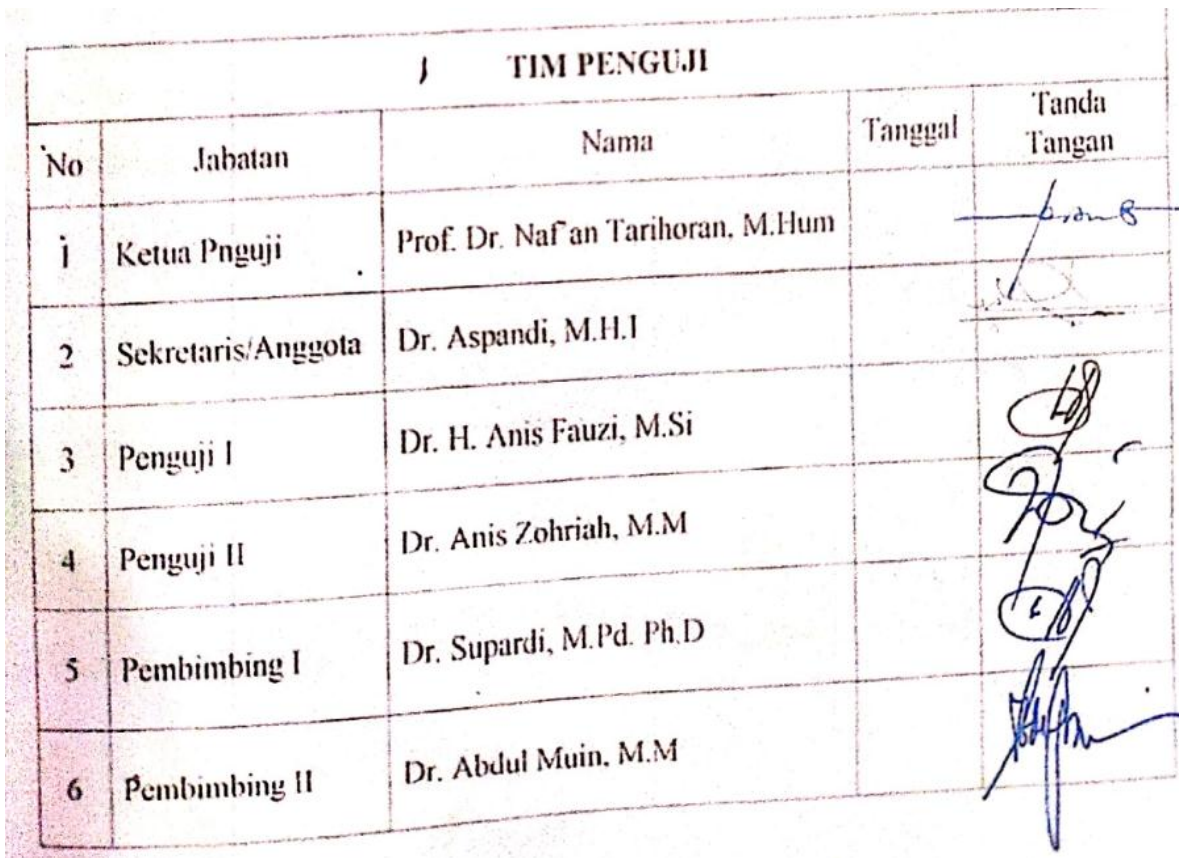 TIM PENGUJI
No Jabatan Nama Tanggal Tanda
Tangan
1 Ketua Pnguji Prof. Dr. Naf'an Tarihoran, M.Hum
2 Sekretaris/Anggota Dr. Aspandi, M.H.I
3 Penguji I Dr. H. Anis Fauzi, M.Si
4 Penguji II Dr. Anis Zohriah, M.M
5 Pembimbing I Dr. Supardi, M.Pd. Ph.D
6 Pembimbing II Dr. Abdul Muin, M.M